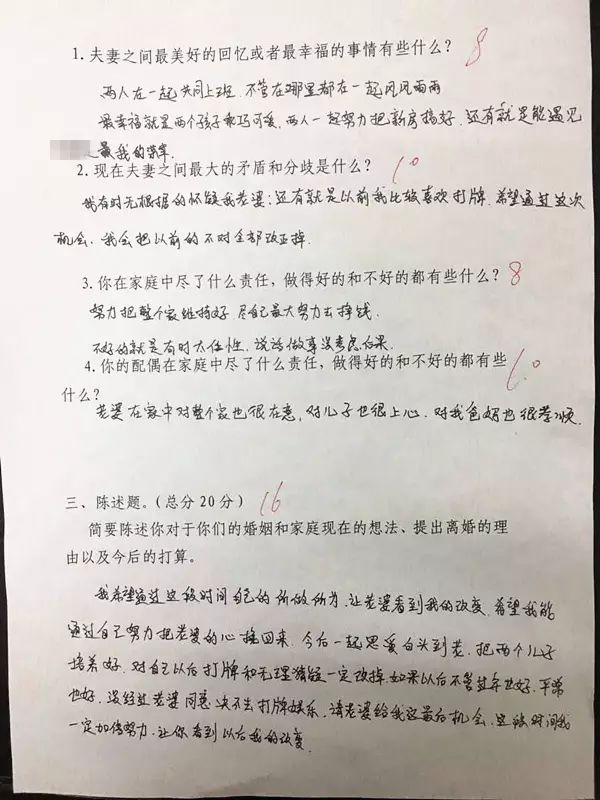 1. 夫妻之间最美好的回忆或者最幸福的事情有些什么？ 8
两人在一起共同上班. 不管在哪里都在一起风风雨雨
最幸福就是两个孩子乖巧可爱. 两人一起努力把新房搞好. 还有就是能遇见
是最我的幸幸.
2. 现在夫妻之间最大的矛盾和分歧是什么？ 10
我有时无根据的怀疑我老婆; 还有就是以前我比较喜欢打牌. 希望通过这次
机会. 我会把以前的不对全部改正掉.
3. 你在家庭中尽了什么责任，做得好的和不好的都有些什么？ 8
努力把整个家维持好. 尽自己最大努力去挣钱.
不好的就是有时太任性. 说话做事没考虑后果.
4. 你的配偶在家庭中尽了什么责任，做得好的和不好的都有些 10
什么？
老婆在家中对整个家也很在意, 对儿子也很上心. 对我爸妈也很孝顺.
三、陈述题。（总分20分） 16
简要陈述你对于你们的婚姻和家庭现在的想法、提出离婚的理
由以及今后的打算。
我希望通过这段时间自己的所做所为. 让老婆看到我的改变. 希望我能
通过自己努力把老婆的心挽回来. 今后一起恩爱白头到老. 把两个儿子
培养好. 对自己以后打牌和无理猜疑一定改掉. 如果以后不管过年也好. 平常
也好. 没经过老婆同意决不去打牌娱乐. 请老婆给我这最后机会. 这段时间我
一定加倍努力. 让你看到以后我的改变.